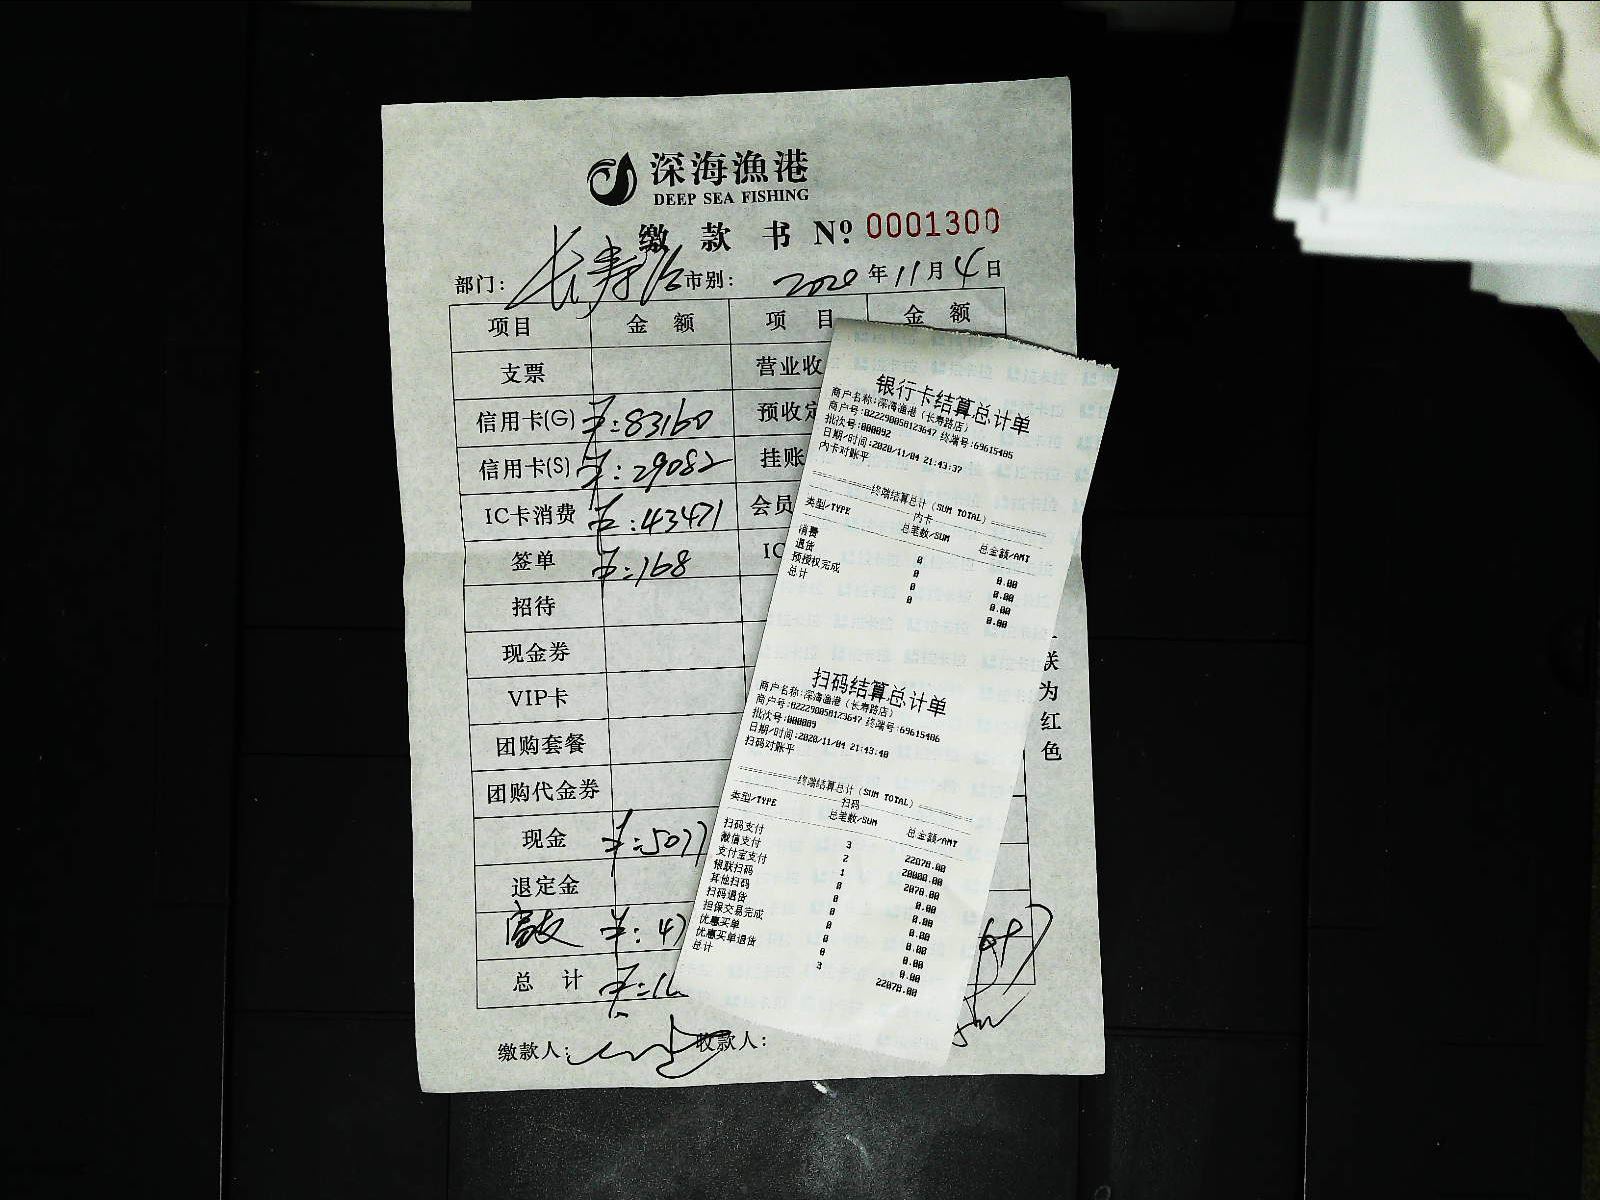 深海漁港
DEEP SEA FISHING
缴 款 书 Nº 0001300
部门: 长寿路 市别: 2020 年 11 月 4 日
项目 金 额 项 目 金 额
支票 营业收
信用卡(G) ¥:83160 预收定
信用卡(S) ¥:29082 挂账
IC卡消费 ¥:43471 会员
签单 ¥:168 IC
招待
现金券
VIP卡
团购套餐
团购代金券
现金 ¥:5077
退定金
¥:47
总 计 ¥:16
缴款人: 收款人:
联为红色
银行卡结算总计单
商户名称:深海渔港（长寿路店）
商户号:822290058123647 终端号:69615405
批次号:000092
日期/时间:2020/11/04 21:43:37
内卡对账平
==========终端结算总计（SUM TOTAL）==========
内卡
类型/TYPE 总笔数/SUM 总金额/AMT
消费 0 0.00
退货 0 0.00
预授权完成 0 0.00
总计 0 0.00
扫码结算总计单
商户名称:深海渔港（长寿路店）
商户号:822290058123647 终端号:69615406
批次号:000089
日期/时间:2020/11/04 21:43:40
扫码对账平
==========终端结算总计（SUM TOTAL）==========
扫码
类型/TYPE 总笔数/SUM 总金额/AMT
扫码支付 3 22078.00
微信支付 2 20000.00
支付宝支付 1 2078.00
银联扫码 0 0.00
其他扫码 0 0.00
扫码退货 0 0.00
担保交易完成 0 0.00
优惠买单 0 0.00
优惠买单退货 0 0.00
总计 3 22078.00